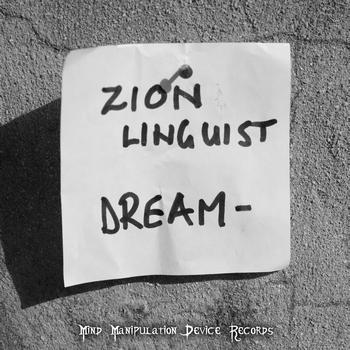 ZION
LINGUIST
DREAM-
Mind Manipulation Device Records